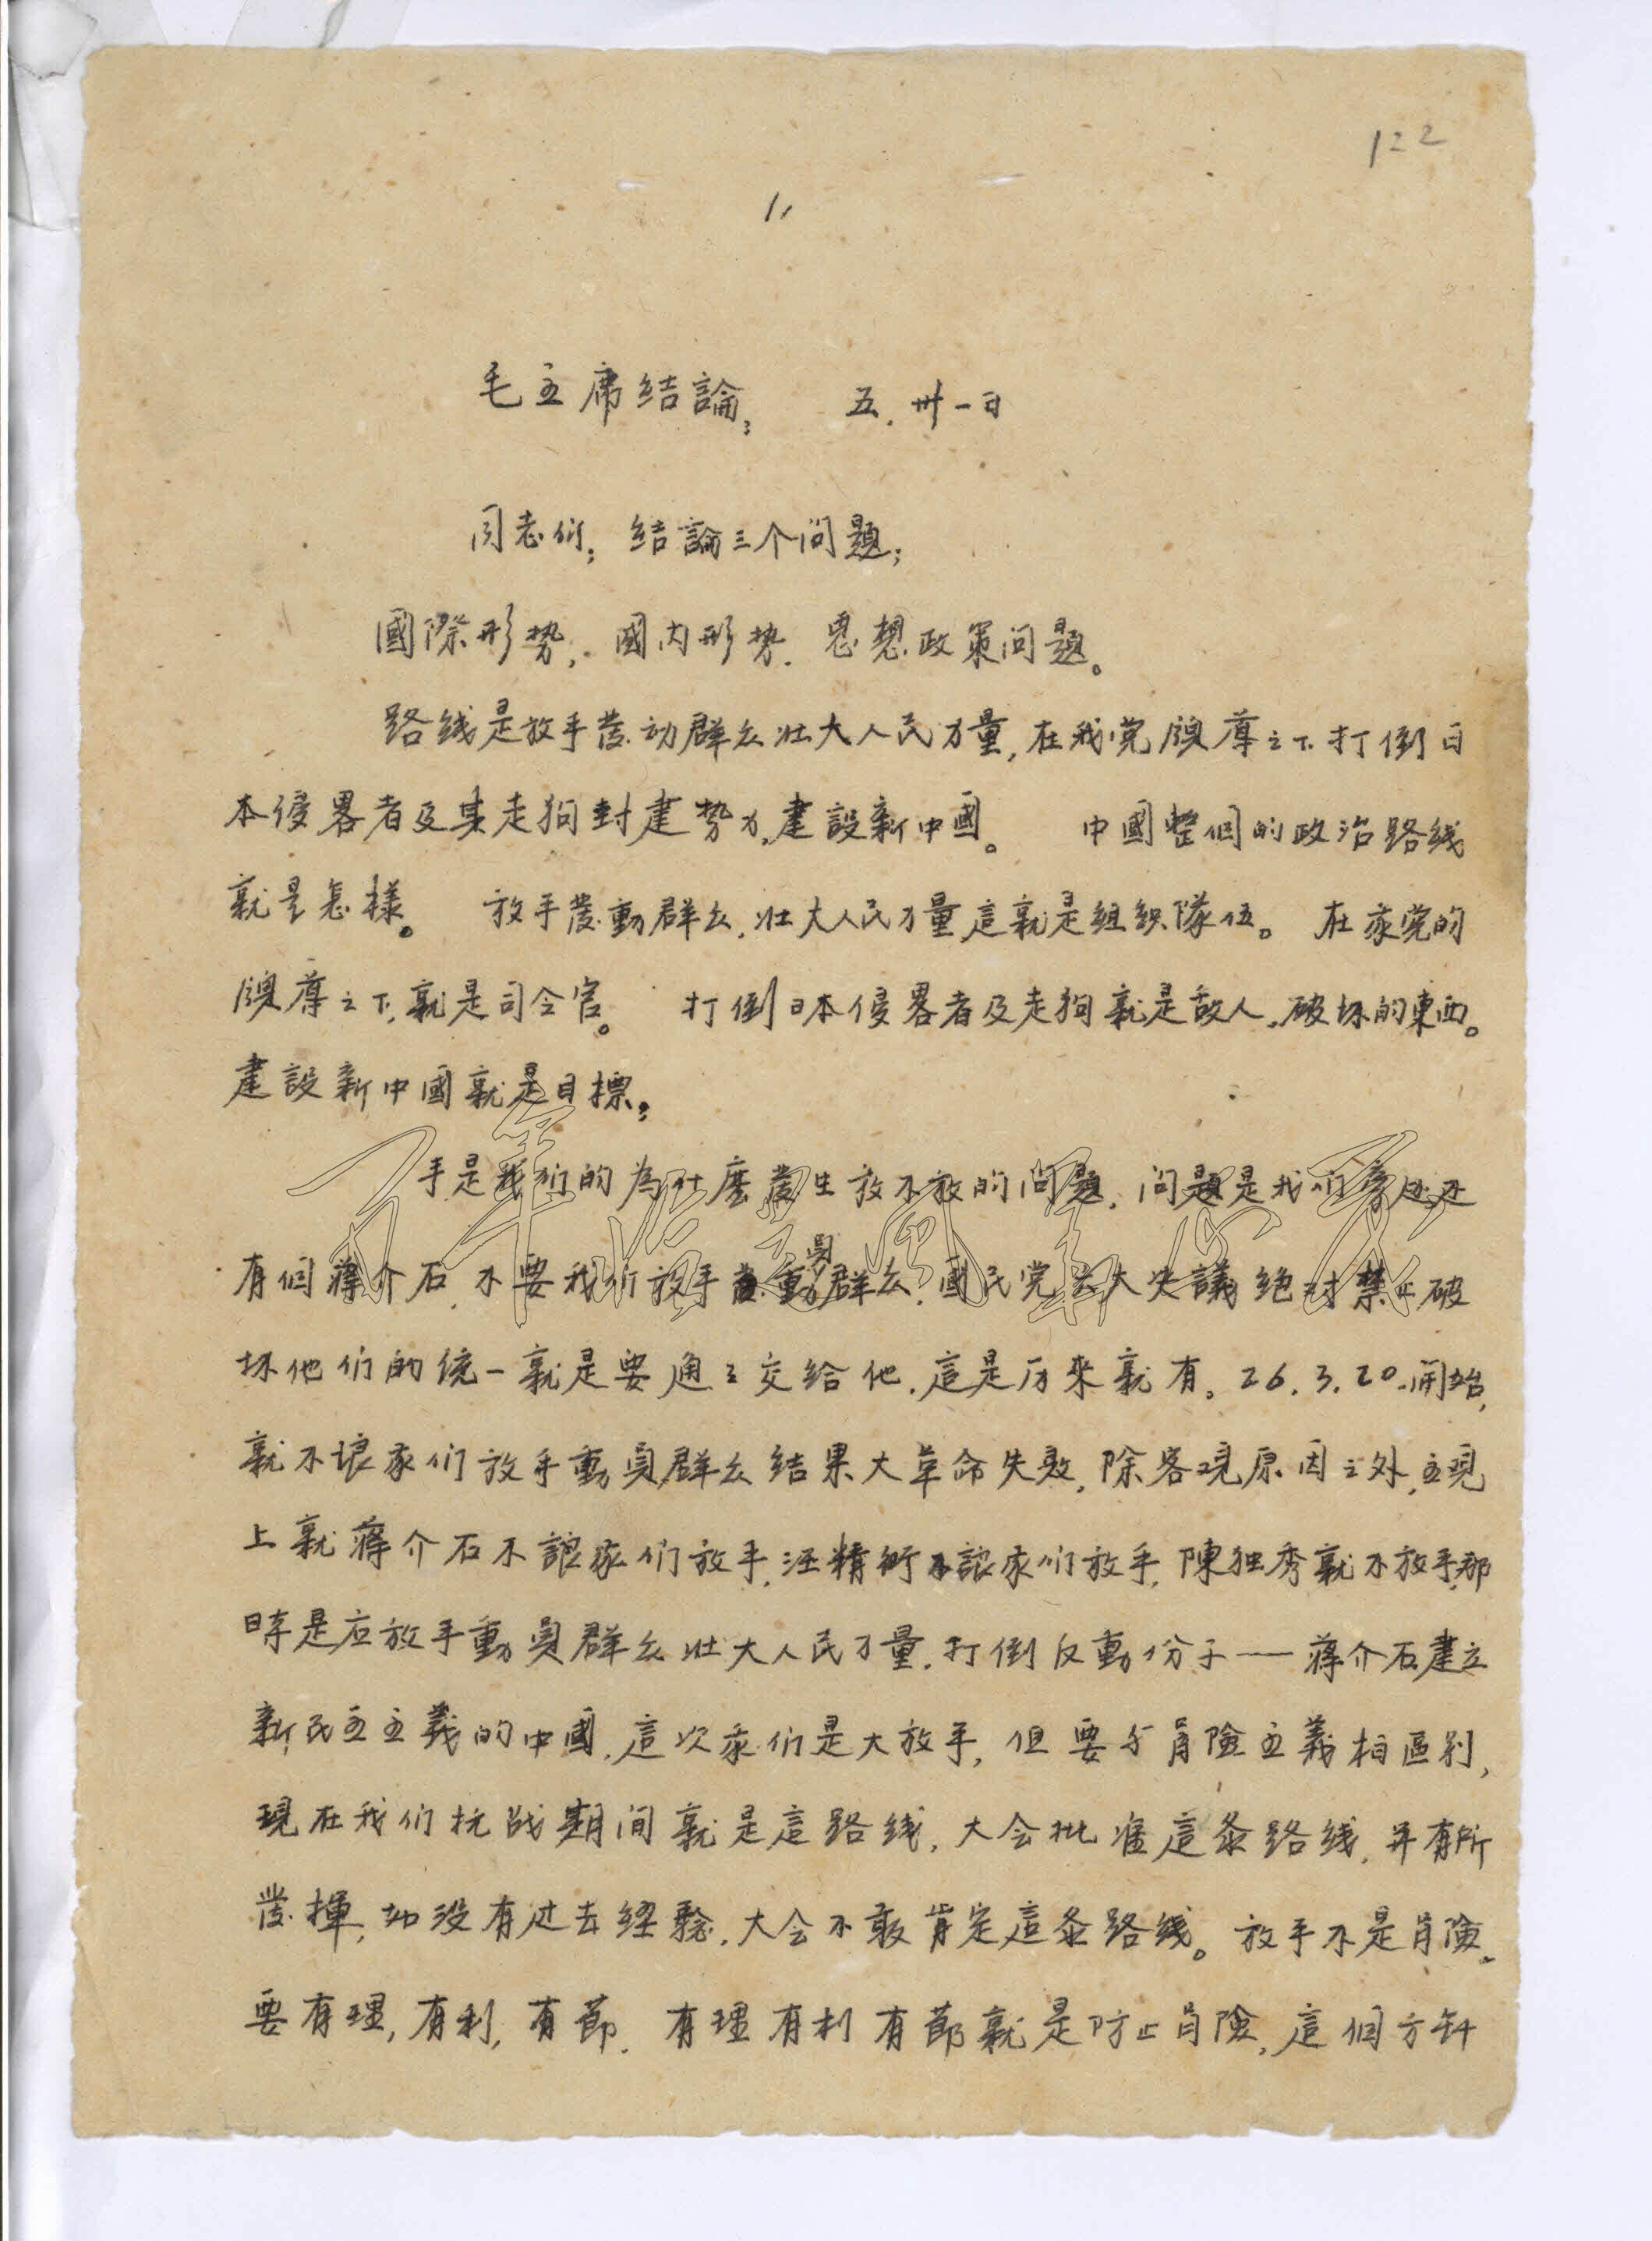 122
1,,
毛主席結論： 五．卅一日
同志们；結論三个问題；
國際形势，國内形势．思想政策问題。
路线是放手發动群众壮大人民力量，在我党領導之下打倒日
本侵畧者及其走狗封建势力，建設新中國。 中國整個的政治路线
就是怎樣。 放手發動群众，壮大人民力量這就是組織隊伍。 在我党的
領導之下，就是司令官。 打倒日本侵畧者及走狗就是敌人，破坏的東西。
建設新中國就是目標。
手是我们的為什麽發生放不放的问題，问題是我们旁边还
有個蒋介石，不要我们放手動員群众，國民党六大决議绝对禁止破
坏他们的统一就是要通通交給他，這是历來就有。26.3.20开始，
就不讓我们放手動員群众結果大革命失敗，除客观原因之外，主观
上就蒋介石不讓我们放手，汪精衛不讓我们放手，陳独秀就不放手，那
時是应放手動員群众壮大人民力量，打倒反動份子——蒋介石建立
新民主主義的中國，這次我们是大放手，但要与冐險主義相區别，
現在我们抗战期间就是這路线，大会批准這条路线，并有所
發揮，如没有过去经驗，大会不敢肯定這条路线。放手不是冐險，
要有理，有利，有節．有理有利有節就是防止冐險，這個方针